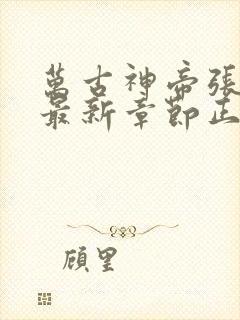 萬古神帝張
最新章節正
顧里